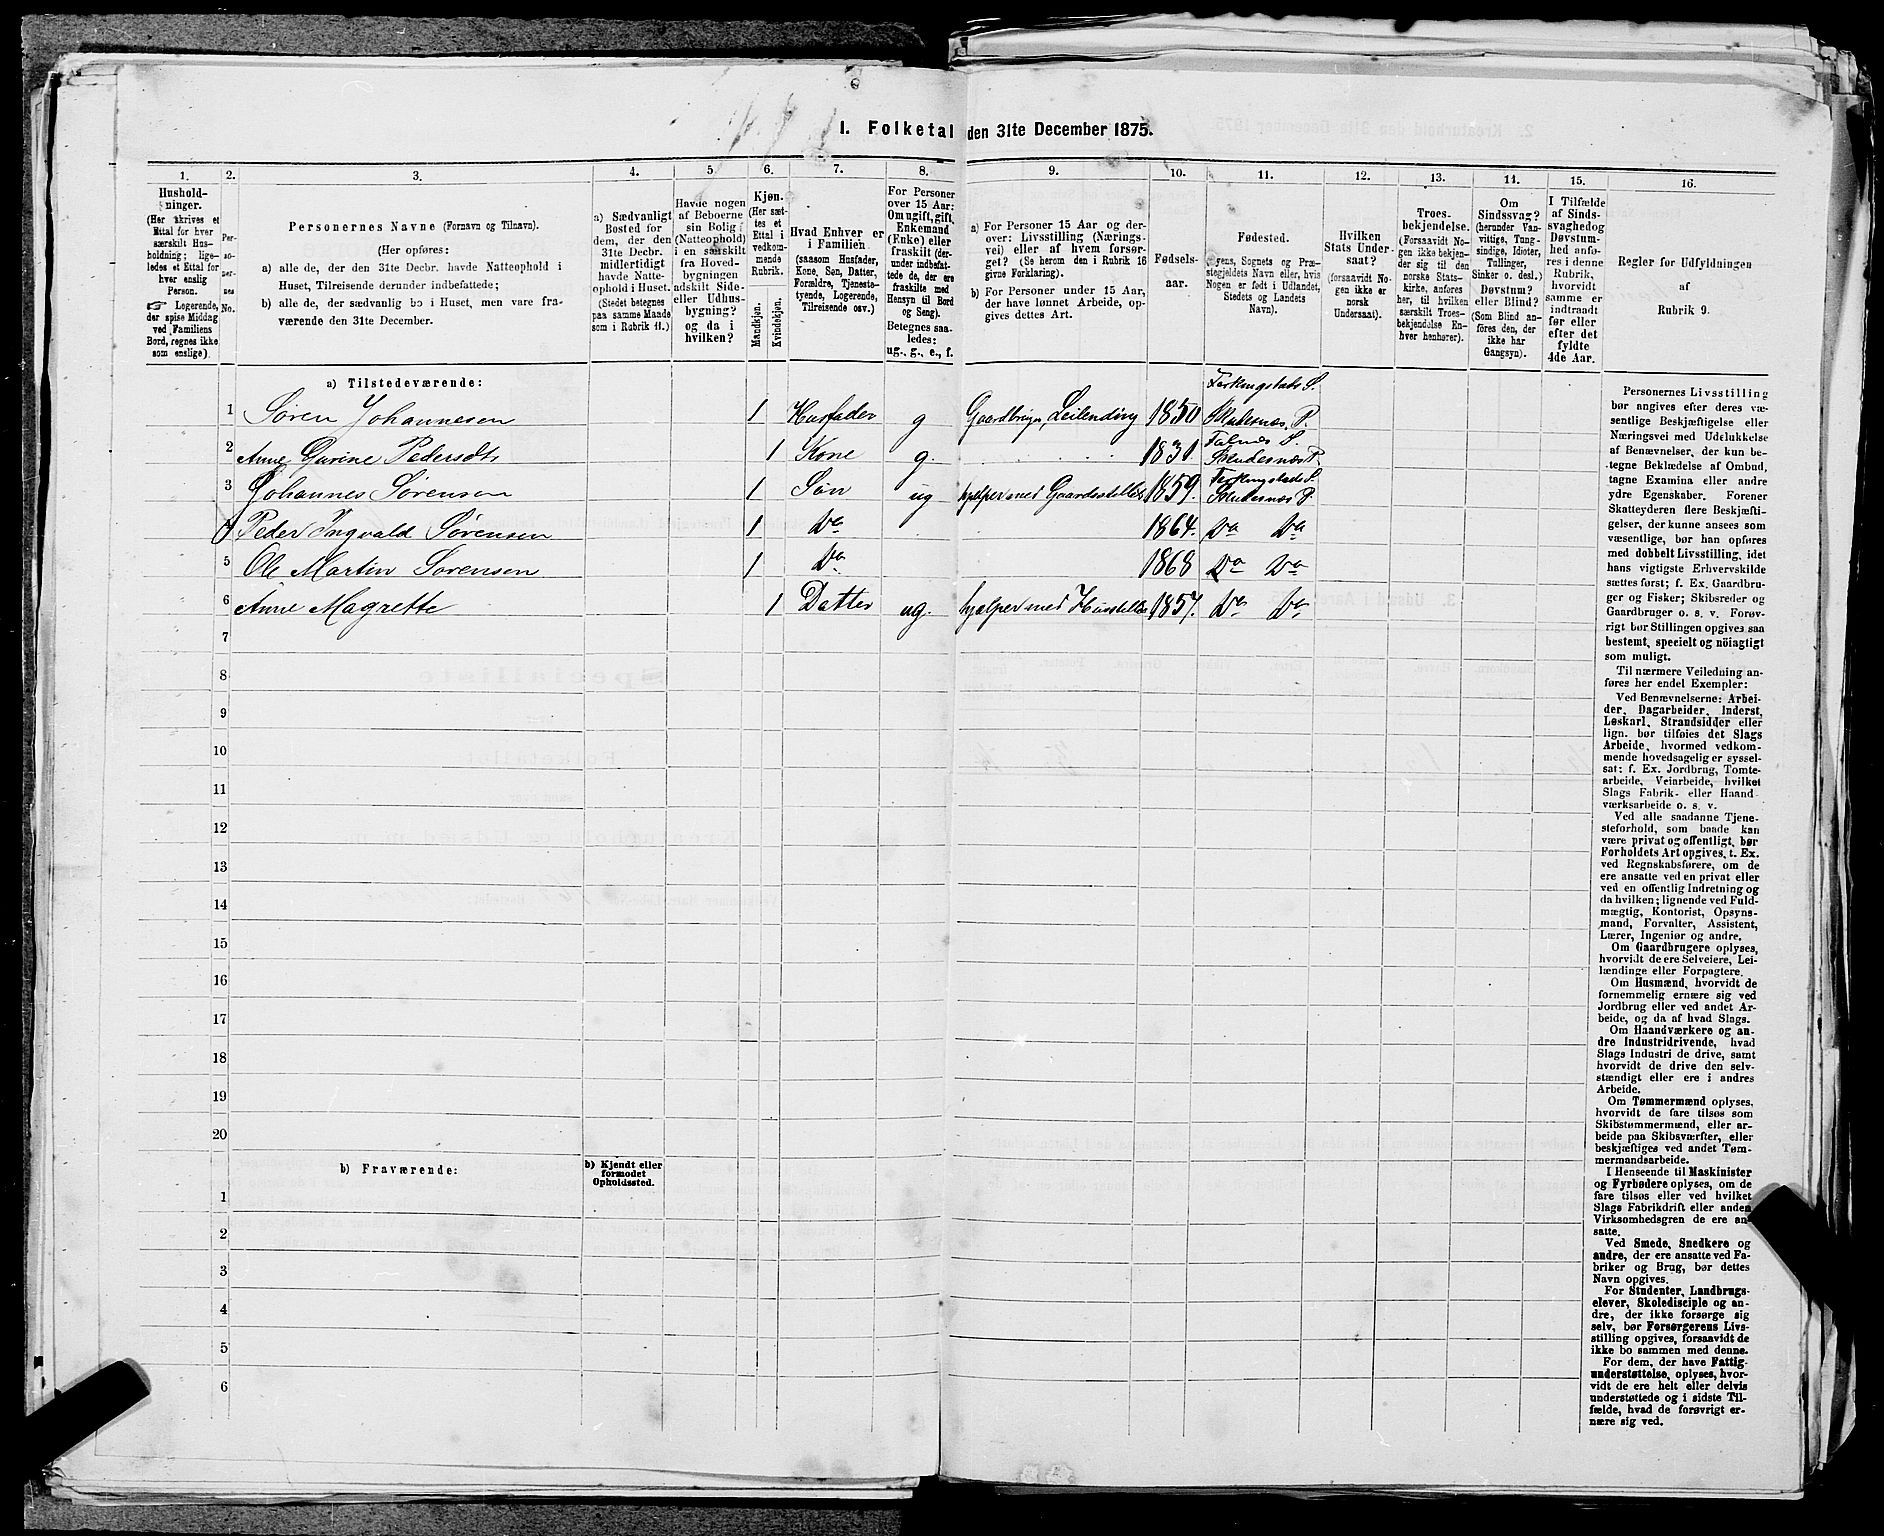 I. Folketal den 31te December 1875.
1. 2. 3. 4. 5. 6. 7. 8. 9. 10. 11. 12. 13. 14. 15. 16.
Hushold-
ninger.
(Her skrives et
Ettal for hver
særskilt Hus-
holdning; lige-
ledes et Ettal for
hver enslig
Person.
☞ Logerende,
der spise Middag
ved Familiens
Bord, regnes ikke
som enslige).
Per-
so-
ner-
nes
No.
Personernes Navne (Fornavn og Tilnavn).
(Her opføres:
a) alle de, der den 31te Decbr. havde Natteophold i
Huset, Tilreisende derunder indbefattede;
b) alle de, der sædvanlig bo i Huset, men vare fra-
værende den 31te December.
a) Sædvanligt
Bosted for
dem, der den
31te Decbr.
midlertidigt
havde Natte-
ophold i Huset.
(Stedet betegnes
paa samme Maade
som i Rubrik 11.)
Havde nogen
af Beboerne
sin Bolig
(Natteophold)
i en særskilt
fra Hoved-
bygningen
adskilt Side-
eller Udhus-
bygning?
og da i
hvilken?
Kjøn.
(Her sæt-
tes et
Ettal i
vedkom-
mende
Rubrik.
Mandkjøn.
Kvindekjøn.
Hvad Enhver er
i Familien
(saasom Husfader,
Kone, Søn, Datter,
Forældre, Tjeneste-
tyende, Logerende,
Tilreisende osv.)
For Personer
over 15 Aar:
Om ugift, gift,
Enkemand
(Enke) eller
fraskilt (der-
under indbefat-
tede de, der ere
fraskilte med
Hensyn til Bord
og Seng).
Betegnes saa-
ledes:
ug., g., e., f.
a) For Personer 15 Aar og der-
over: Livsstilling (Nærings-
vei) eller af hvem forsør-
get? (Se herom den i Rubrik 16
givne Forklaring).
b) For Personer under 15 Aar,
der have lønnet Arbeide, op-
gives dettes Art.
Fødsels-
aar.
Fødested.
(Byens, Sognets og Præ-
stegjeldets Navn eller, hvis
Nogen er født i Udlandet,
Stedets og Landets
Navn).
Hvilken
Stats Under-
saat?
(forsaavidt No-
gen ikke er
norsk
Undersaat).
Troes-
bekjendelse.
(Forsaavidt No-
gen ikke bekjen-
der sig til den
norske Stats-
kirke, anføres
her, til hvilken
særskilt Troes-
bekjendelse En-
hver henhører).
Om
Sindssvag?
(herunder Van-
vittige, Tung-
sindige, Idioter,
Tullinger,
Sinker o. desl.)
Døvstum?
eller Blind?
(Som Blind an-
føres den, der
ikke har
Gangsyn).
I Tilfælde
af Sinds-
svaghed og
Døvstum-
hed anfø-
res i denne
Rubrik,
hvorvidt
samme er
indtraadt
før eller
efter det
fyldte
4de Aar.
Regler for Udfyldningen
af
Rubrik 9.
a) Tilstedeværende:
1 Søren Johannesen 1 Husfader g Gaardbruger, Leilending 1830 Ferkingstads S. Skudesnæs P.
2 Anne Gurine Pedersdtr 1 Kone g. 1831. Falnæs S. Skudesnæs P.
3 Johannes Sørensen 1 Søn ug hjelper med Gaardsstellet 1859. Ferkingstads S. Skudesnæs P.
4 Peder Ingvald Sørensen 1 Do 1864. Do Do
5 Ole Martin Sørensen 1 Do 1868 Do Do
6 Anne Magrette 1 Datter ug. hjelper med Husstellet 1857. Do Do
7
8
9
10
11
12
13
14
15
16
17
18
19
20
b) Fraværende:
b) Kjendt eller
formodet
Opholdssted.
1
2
3
4
5
6
Personernes Livsstilling
bør angives efter deres væ-
sentlige Beskjæftigelse eller
Næringsvei med Udelukkelse
af Benævnelser, der kun be-
tegne Beklædelse af Ombud,
tagne Examina eller andre
ydre Egenskaber. Forener
Skatteyderen flere Beskjæfti-
gelser, der kunne ansees som
væsentlige, bør han opføres
med dobbelt Livsstilling, idet
hans vigtigste Erhvervskilde
sættes først; f. Ex. Gaardbru-
ger og Fisker; Skibsreder og
Gaardbruger o. s. v. Forøv-
rigt bør Stillingen opgives saa
bestemt, specielt og nöiagtigt
som muligt.
Til nærmere Veiledning an-
føres her endel Exempler:
Ved Benævnelserne: Arbei-
der, Dagarbeider, Inderst,
Løskarl, Strandsidder eller
lign. bør tilføies det Slags
Arbeide, hvormed vedkom-
mende hovedsagelig er syssel-
sat; f. Ex. Jordbrug, Tomte-
arbeide, Veiarbeide, hvilket
Slags Fabrik- eller Haand-
værksarbeide o. s. v.
Ved alle saadanne Tjene-
steforhold, som baade kan
være privat og offentligt, bør
Forholdets Art opgives, t. Ex.
ved Regnskabsførere, om de
ere ansatte ved en privat eller
ved en offentlig Indretning og
da hvilken; lignende ved Fuld-
mægtig, Kontorist, Opsyns-
mand, Forvalter, Assistent,
Lærer, Ingeniør og andre.
Om Gaardbrugere oplyses,
hvorvidt de ere Selveiere, Lei-
lændinge eller Forpagtere.
Om Husmænd, hvorvidt de
fornemmelig ernære sig ved
Jordbrug eller ved andet Ar-
beide, og da af hvad Slags.
Om Haandværkere og an-
dre Industridrivende, hvad
Slags Industri de drive, samt
hvorvidt de drive den selv-
stændigt eller ere i andres
Arbeide.
Om Tømmermænd oplyses,
hvorvidt de fare tilsøs som
Skibstømmermænd, eller ar-
beide paa Skibsværfter, eller
beskjæftiges ved andet Tøm-
mermandsarbeide.
I Henseende til Maskinister
og Fyrbødere oplyses, om de
fare tilsøs eller ved hvilket
Slags Fabrikdrift eller anden
Virksomhedsgren de ere an-
satte.
Ved Smede, Snedkere og
andre, der ere ansatte ved Fa-
briker og Brug, bør dettes
Navn opgives.
For Studenter, Landbrugs-
elever, Skoledisciple og an-
dre, der ikke forsørge sig
selv, bør Forsørgerens Livs-
stilling opgives, forsaavidt de
ikke bo sammen med denne.
For dem, der have Fattig-
understøttelse, oplyses, hvor-
vidt de ere helt eller delvis
understøttede og i sidste Til-
fælde, hvad de forøvrigt er-
nære sig ved.